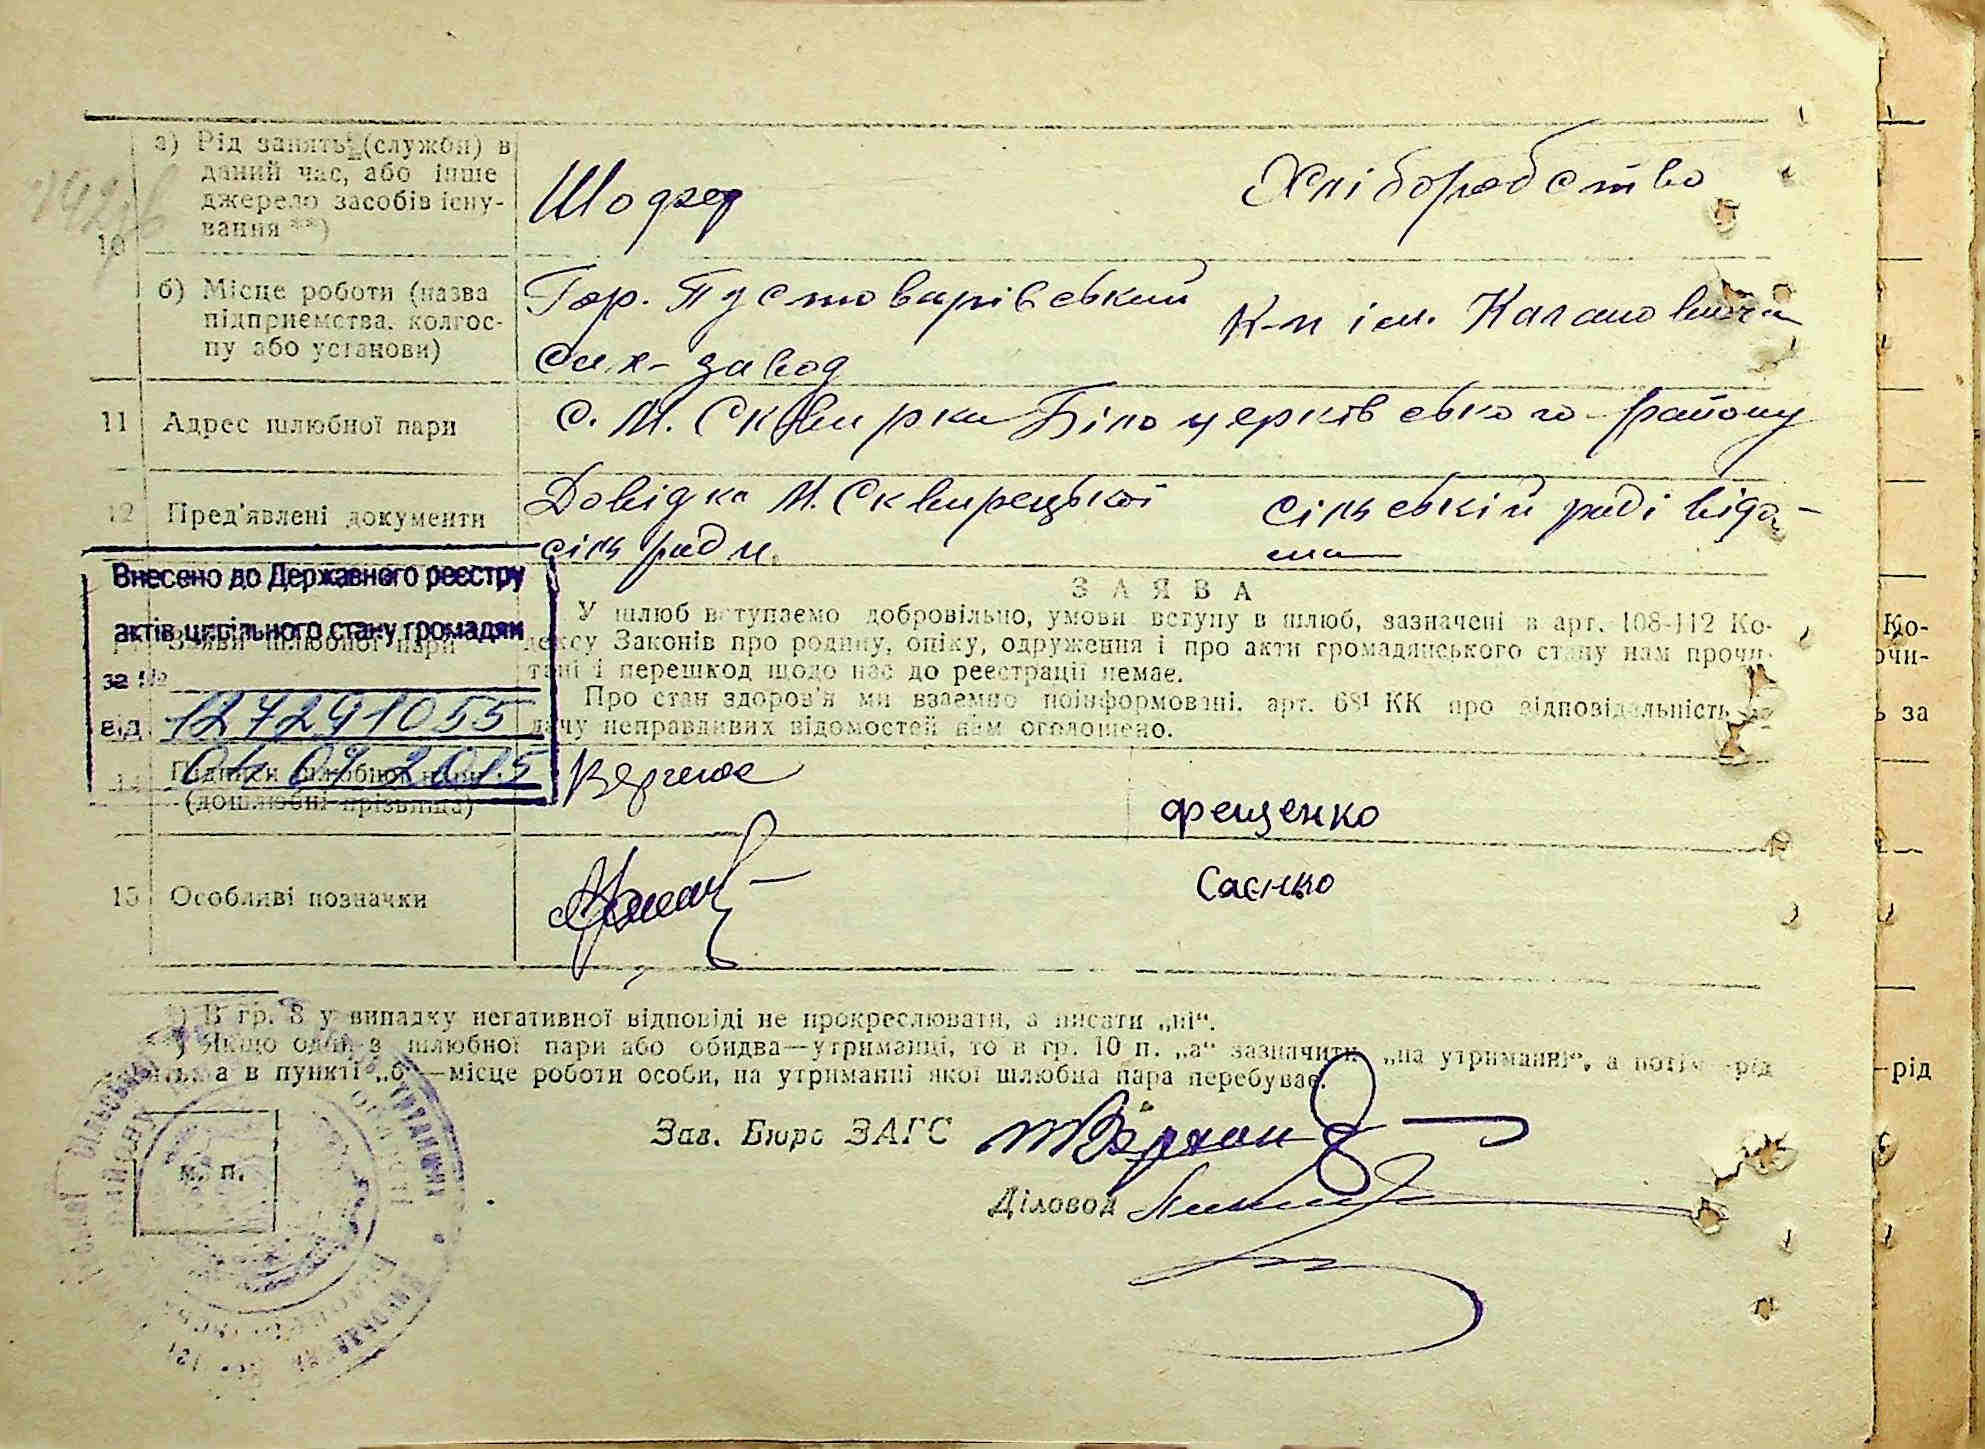 а) Рід занять (служби) в
даний час, або інше
джерело засобів існу-
вання **)
10
Шофер
Хліборобство
б) Місце роботи (назва
підприємства, колгос-
пу або установи)
Гор. Пустоварівський
завод
К-п ім. Кагановича
11 Адрес шлюбної пари
с. М. Сквирка Білоцерківського району
12 Пред'явлені документи
Довідка М. Сквирецької
сіль ради.
сільській раді відо-
ма
Внесено до Державного реєстру
актів цивільного стану громадян
за №
від 127291055
04 02 2015
Заяви шлюбної пари
ЗАЯВА
У шлюб вступаємо добровільно, умови вступу в шлюб, зазначені в арт. 108-112 Ко-
дексу Законів про родину, опіку, одруження і про акти громадянського стану нам прочи-
тані і перешкод щодо нас до реєстрації немає.
Про стан здоров'я ми взаємно поінформовані. арт. 68¹ КК про відповідальність за
дачу неправдивих відомостей нам оголошено.
14 Підписи шлюбної пари
(дошлюбні прізвища)
Фещенко
15 Особливі позначки
Саєнко
*) В гр. 8 у випадку негативної відповіді не прокреслювати, а писати „ні“.
Якщо один з шлюбної пари або обидва—утриманці, то в гр. 10 п. „а“ зазначити „на утриманні“, а потім—рід
занять, а в пункті „б“—місце роботи особи, на утриманні якої шлюбна пара перебуває.
Зав. Бюро ЗАГС
м. п.
Діловод
Ко-
очи-
ь за
-рід